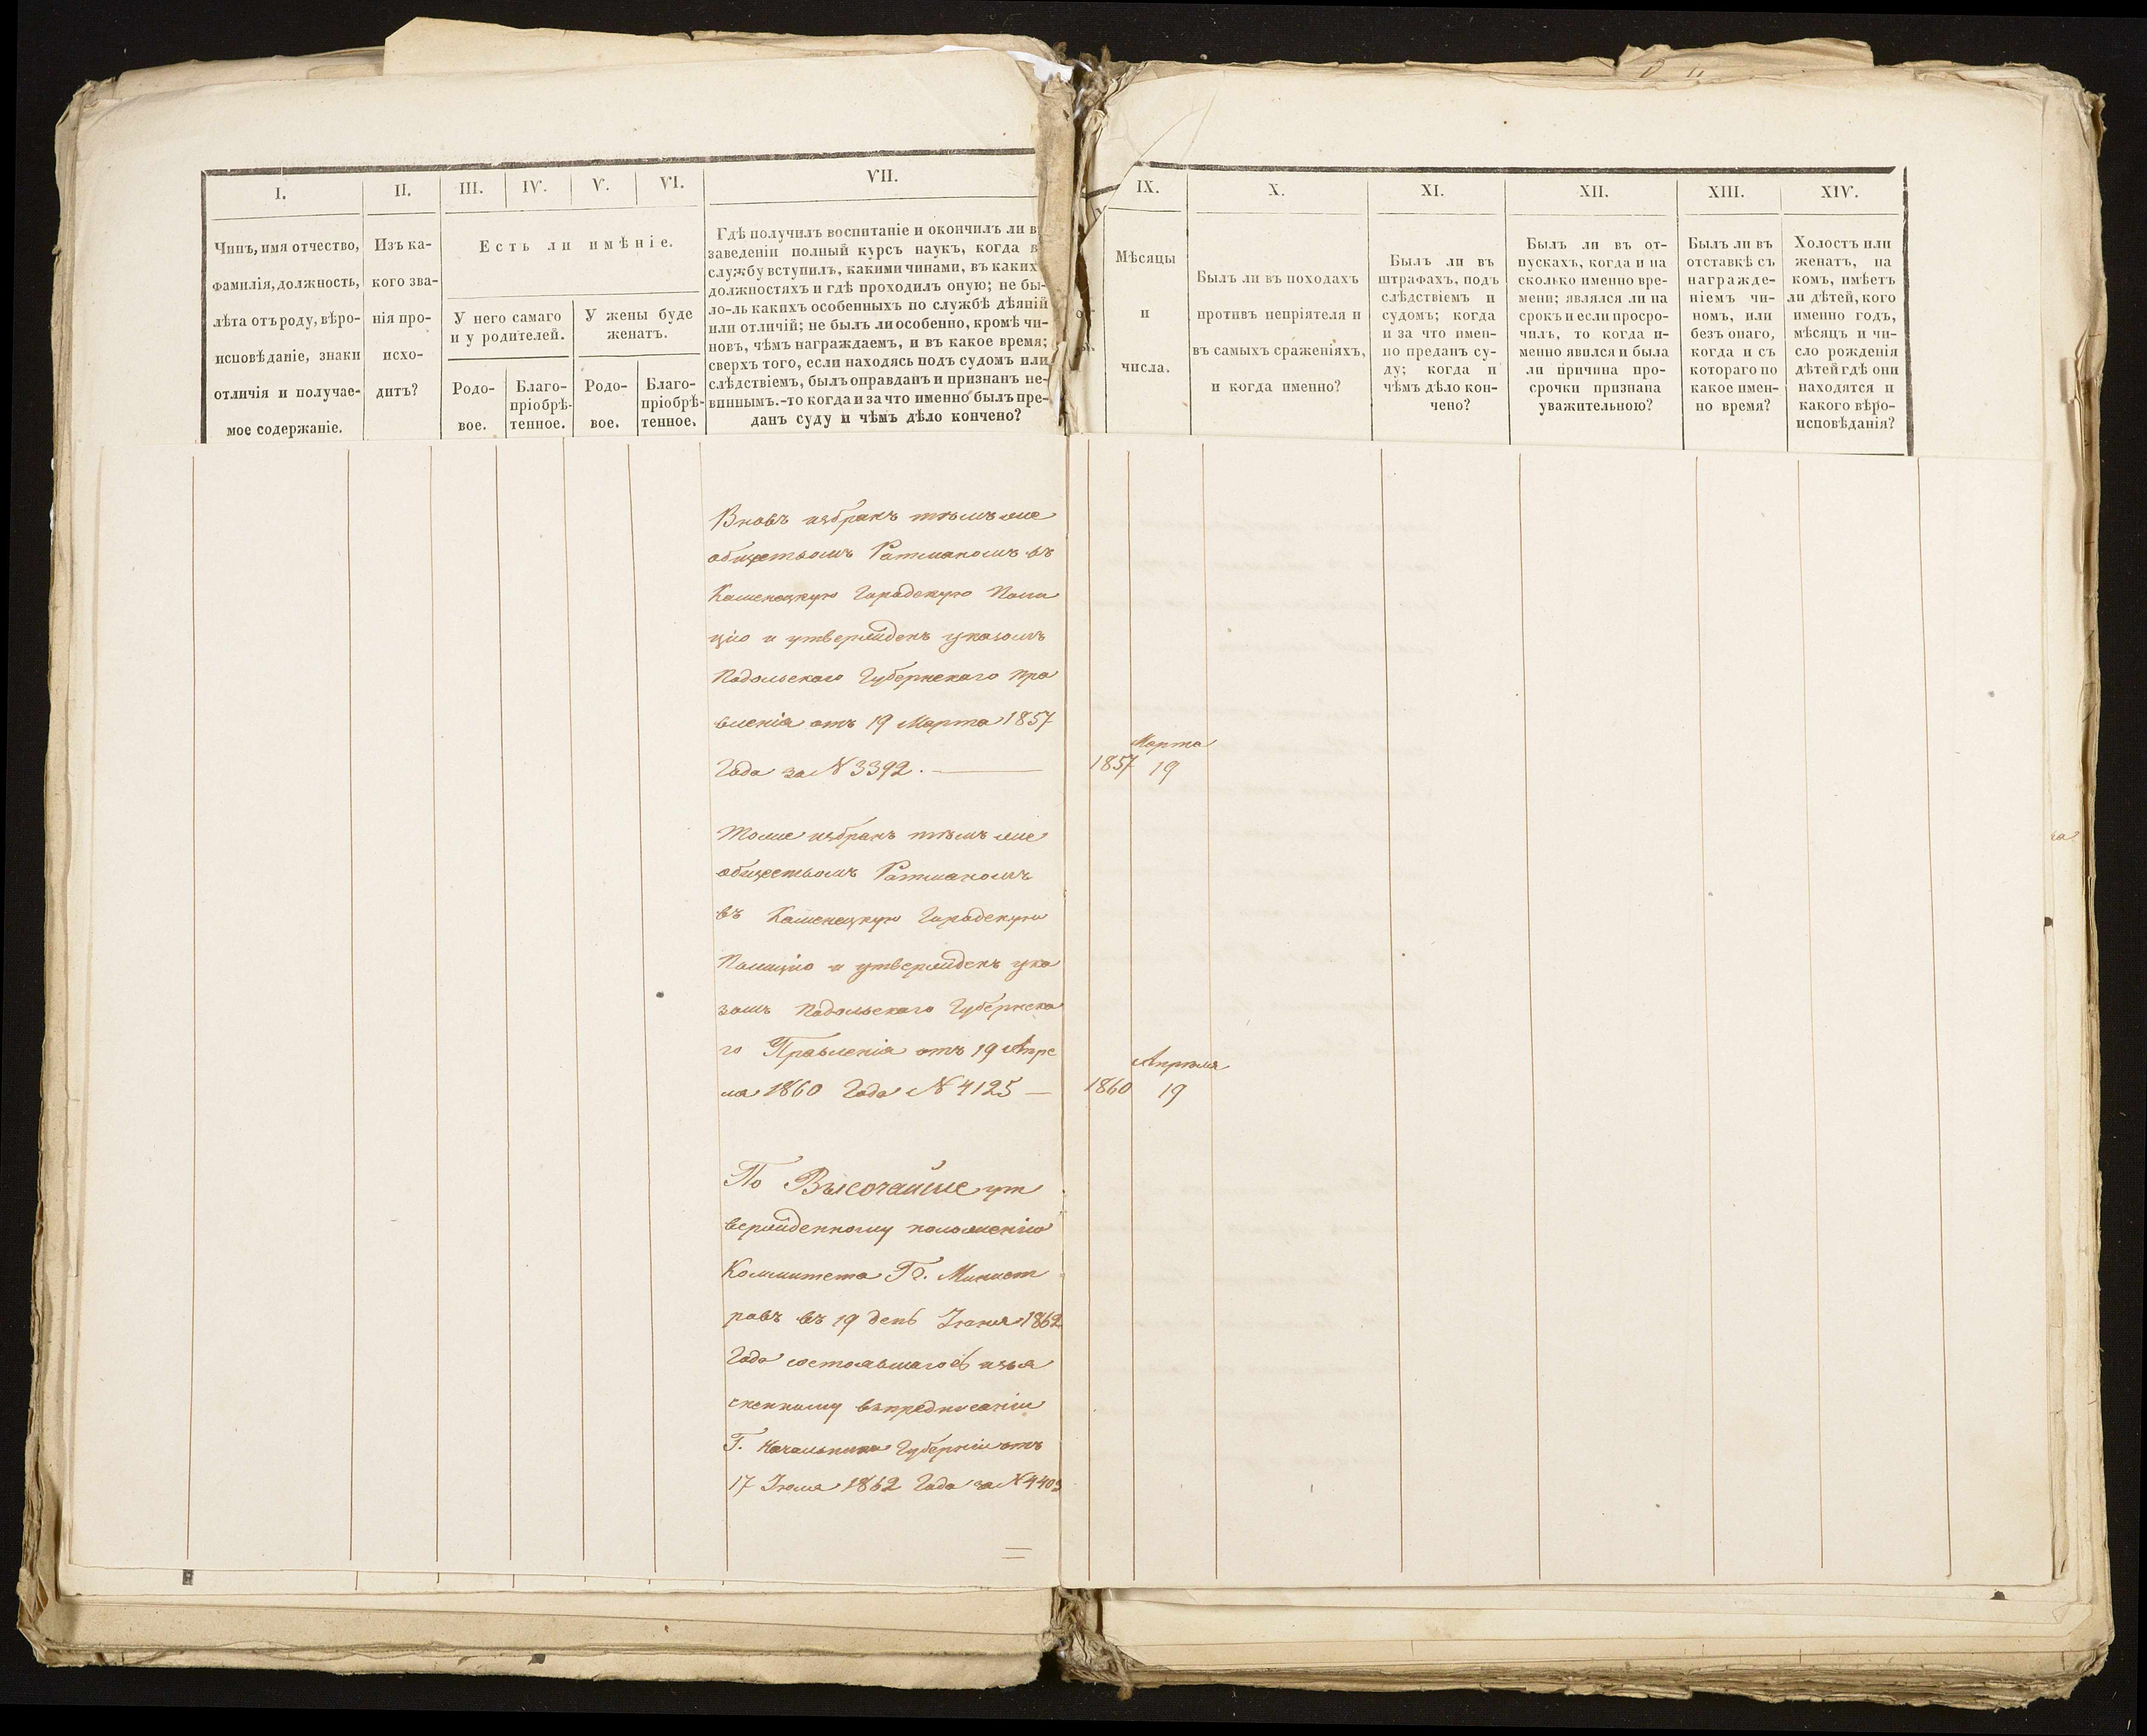 I.
II.
III.
IV.
V.
VI.
VII.
Чинъ, имя отчество,
фамилія, должность,
лѣта отъ роду, вѣро-
исповѣданіе, знаки
отличія и получае-
мое содержаніе.
Изъ ка-
кого зва-
нія про-
исхо-
дитъ?
Есть ли имѣніе.
У него самаго
и у родителей.
У жены буде
женатъ.
Родо-
вое.
Благо-
пріобрѣ-
тенное.
Родо-
вое.
Благо-
пріобрѣ-
тенное.
Гдѣ получилъ воспитаніе и окончилъ ли в
заведеніи полный курсъ наукъ, когда в
службу вступилъ, какими чинами, въ каких
должностяхъ и гдѣ проходилъ оную; не бы-
ло-ль какихъ особенныхъ по службѣ дѣяній
или отличій; не былъ ли особенно, кромѣ чи-
новъ, чѣмъ награждаемъ, и въ какое время;
сверхъ того, если находясь подъ судомъ или
слѣдствіемъ, былъ оправданъ и признанъ не-
виннымъ.-то когда и за что именно былъ пре-
данъ суду и чѣмъ дѣло кончено?
Вновь избранъ тѣмъ же
обществомъ Ратманомъ въ
Каменецкую Городскую Поли
цію и утвержденъ указомъ
Подольскаго Губернскаго Пра
вленія отъ 19 Марта 1857
Года за N 3392.
Тоже избранъ тѣмъ же
обществомъ Ратманомъ
въ Каменецкую Городскую
Полицію и утвержденъ ука
зомъ Подольскаго Губернска
го Правленія отъ 19 Апре
ля 1860 Года N 4125
По Высочайше ут
вержденному положенію
Коммитета Гг. Минист
ровъ въ 19 день Іюня 1862
Года состоявшагось изъя
сненному въ предписаніи
Г. Начальника Губерніи отъ
17 Іюля 1862 Года за N 4403
IX.
X.
XI.
XII.
XIII.
XIV.
Мѣсяцы
и
числа.
Былъ ли въ походахъ
противъ непріятеля и
въ самыхъ сраженіяхъ,
и когда именно?
Былъ ли въ
штрафахъ, подъ
слѣдствіемъ и
судомъ; когда
и за что имен-
но преданъ су-
ду; когда и
чѣмъ дѣло кон-
чено?
Былъ ли въ от-
пускахъ, когда и на
сколько именно вре-
мени; являлся ли на
срокъ и если просро-
чилъ, то когда и-
менно явился и была
ли причина про-
срочки признана
уважительною?
Былъ ли въ
отставкѣ съ
награжде-
ніемъ чи-
номъ, или
безъ онаго,
когда и съ
котораго по
какое имен-
но время?
Холостъ или
женатъ, на
комъ, имѣетъ
ли дѣтей, кого
именно годъ,
мѣсяцъ и чи-
сло рожденія
дѣтей гдѣ они
находятся и
какого вѣро-
исповѣданія?
Марта
1857 19
Апрѣля
1860 19